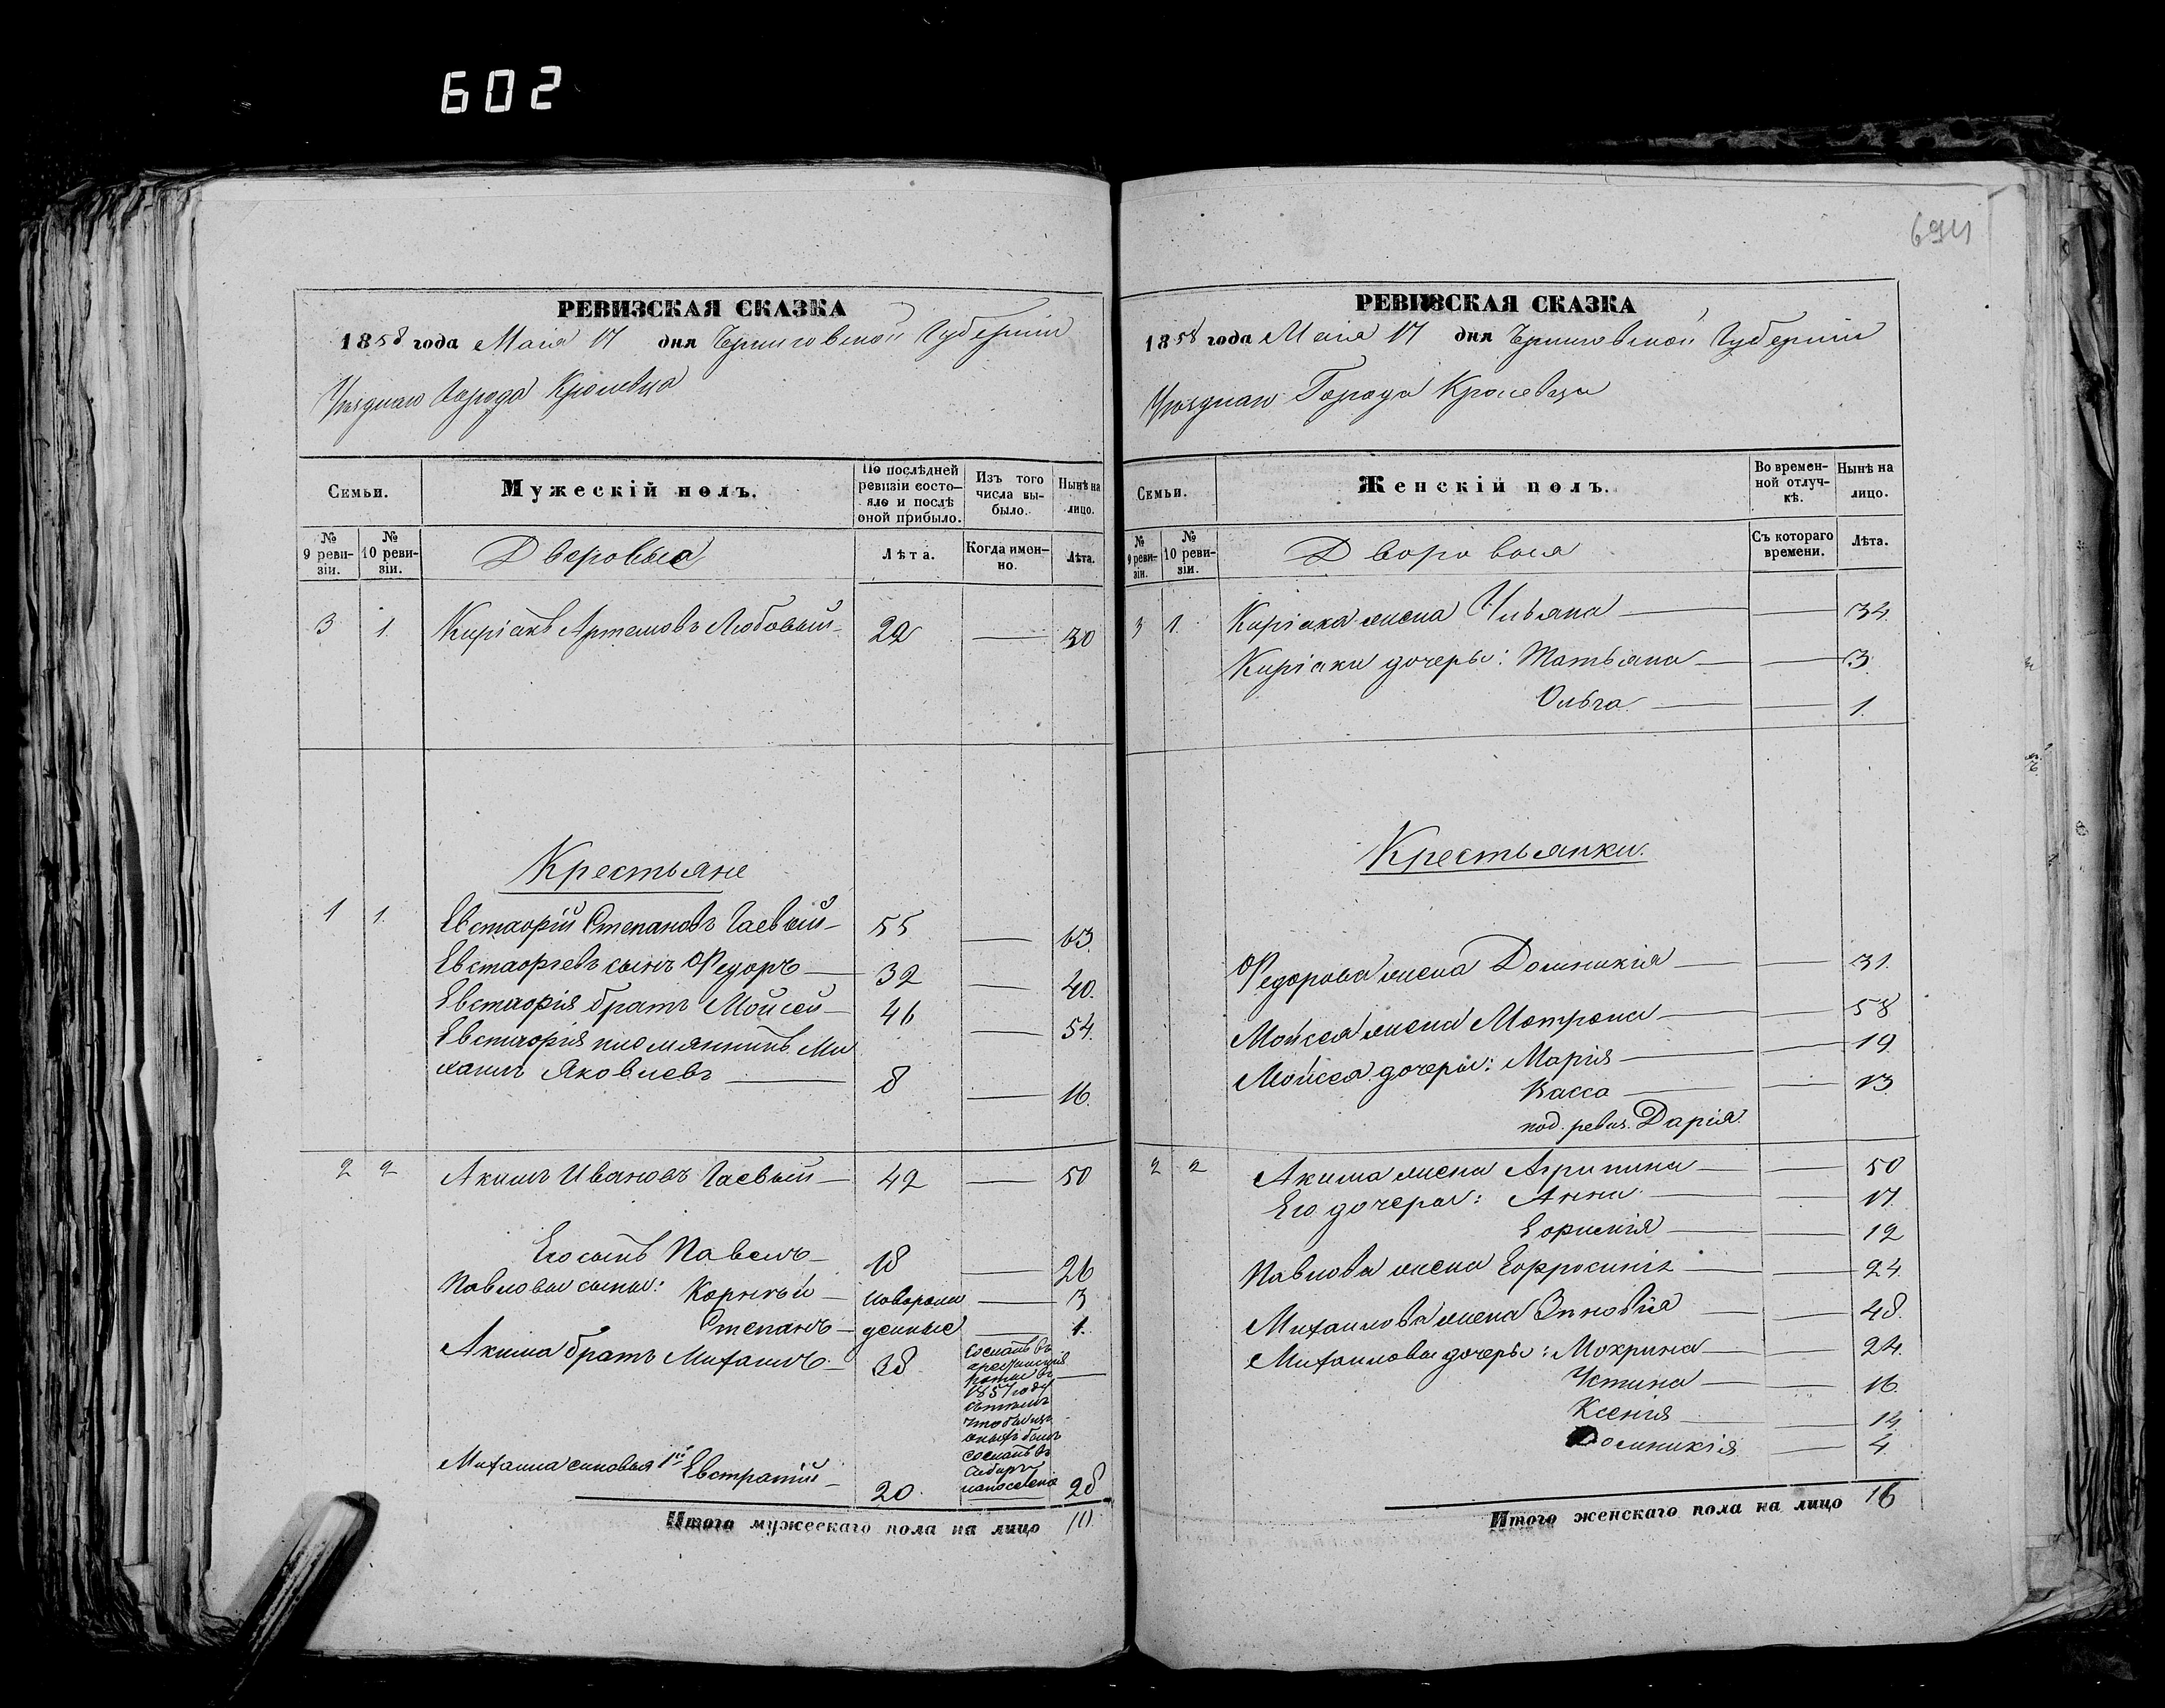 602
694
РЕВИЗСКАЯ СКАЗКА
1858 года Маія 17 дня Черниговской Губерніи
Уѣзднаго Города Кролевца
Семьи.
Мужескій полъ.
По послѣдней ревизіи состояло и послѣ оной прибыло.
Изъ того числа выбыло.
Нынѣ на лицо.
№ 9 ревизіи.
№ 10 ревизіи.
Дворовыя
Лѣта.
Когда именно.
Лѣта.
3 1. Киріакъ Артемовъ Любовый 22 — 30
Крестьяне
1 1. Евстафій Степановъ Гаевый 55 — 63.
Евстафіевъ сынъ Федоръ — 32 — 40.
Евстафія братъ Мойсей — 46 — 54.
Евстафія племянникъ Ми
хаилъ Яковлевъ — 8 — 16.
2 2 Акимъ Ивановъ Гаевый — 42 — 50
Его сынъ Павелъ — 18 — 26
Павловы сыны: Корнѣй — новорож — 3
Степанъ — денные — 1.
Акима братъ Михаилъ — 38
Сосланъ въ
арестанскія
роты въ —
1857 году
съ тѣмъ
чтобы изъ
оныхъ былъ
сосланъ въ
Сибирь
на поселеніе
Михаила сыновья 1й Евстратій — 20 — 28
Итого мужескаго пола на лицо 10
РЕВИЗСКАЯ СКАЗКА
1858 года Маія 17 дня Черниговской Губерніи
Уѣзднаго Города Кролевца
Семьи.
Женскій полъ.
Во временной отлучкѣ.
Нынѣ на лицо.
№ 9 ревизіи.
№ 10 ревизіи.
Дворовыя
Съ котораго времени.
Лѣта.
3 1. Киріака жена Ульяна — — 34.
Киріаки дочеры: Татьяна — — 3.
Ольга. — — 1.
Крестьянки.
Федорова жена Домникія — — 31.
Мойсея жена Мотрона — — 58
Мойсея дочеры: Марія — — 19
Васса — — 13.
под. ревиз. Дарія.
2 2 Акима жена Агрипина — — 50
Его дочеры: Анна. — — 17.
Ефимія — — 12
Павлова жена Ефросинія — — 24.
Михаилова жена Зиновія — — 48.
Михаиловы дочеры: Мокрина — — 24.
Устина — — 16.
Ксенія — — 14.
Домникія — 4.
Итого женскаго пола на лицо 16